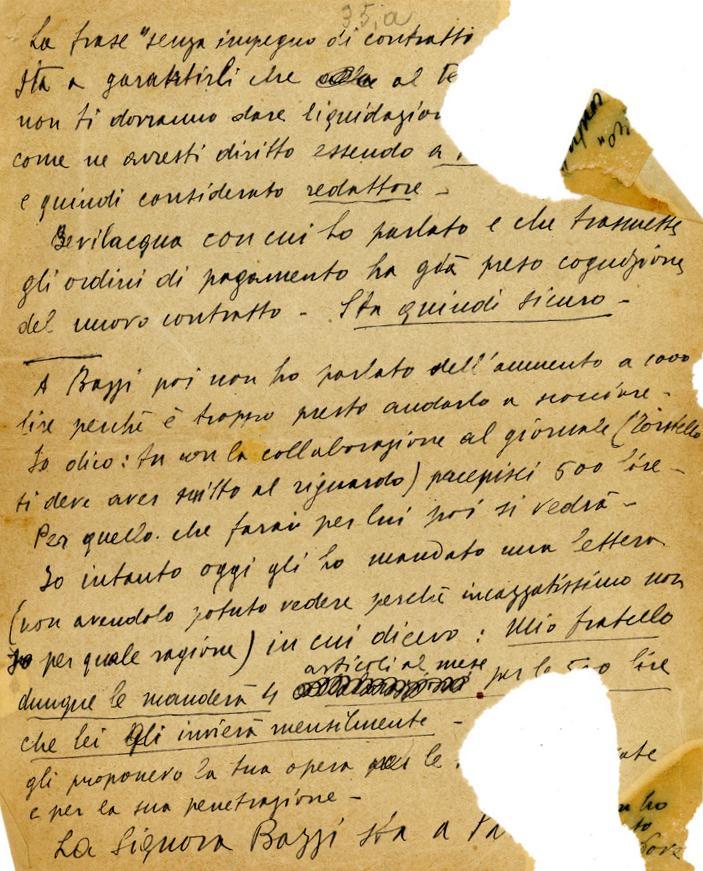 35,a
La frase "senza impegno di contratti
Sta a garantirli che al te
non ti dovranno dare liquidazion
come ne avresti diritto essendo a
e quindi considerato redattore -
Bevilacqua con cui ho parlato e che trasmette
gli ordini di pagamento ha già preso cognizione
del nuovo contratto - Sta quindi sicuro -
A Bazzi poi non ho parlato dell'aumento a 1000
lire perchè è troppo presto andarlo a scocciare -
Io dico: tu con la collaborazione al giornale (
ti deve aver scritto al riguardo) percepisci 500 lire -
Per quello che farai per lui poi si vedrà -
Io intanto oggi gli ho mandato una lettera
(non avendolo potuto vedere perchè incazzatissimo non
so per quale ragione) in cui dicevo: Mio fratello
articoli al mese
dunque le manderà 4 per le 500 lire
che lei gli invierà mensilmente -
gli proponevo la tua opera per le ate
e per la sua penetrazione -
La Signora Bazzi sta a
ho
to